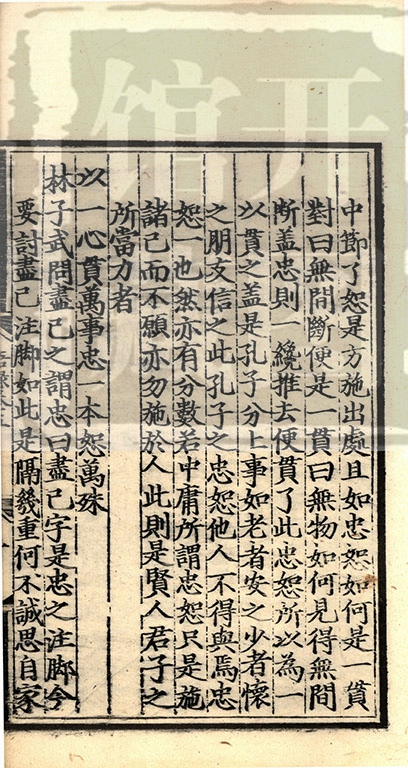 中節了恕是方施出處且如忠恕如何是一貫
對曰無間斷便是一貫曰無物如何見得無間
斷盖忠則一纔推去便貫了此忠恕所以為一
以貫之盖是孔子分上事如老者安之少者懷
之朋友信之此孔子之忠恕他人不得與焉忠
恕一也然亦有分數若中庸所謂忠恕只是施
諸己而不願亦勿施於人此則是賢人君子之
所當力者
以一心貫萬事忠一本恕萬殊
林子武問盡己之謂忠曰盡己字是忠之注脚今
要討盡己注脚如此是隔幾重何不誠思自家